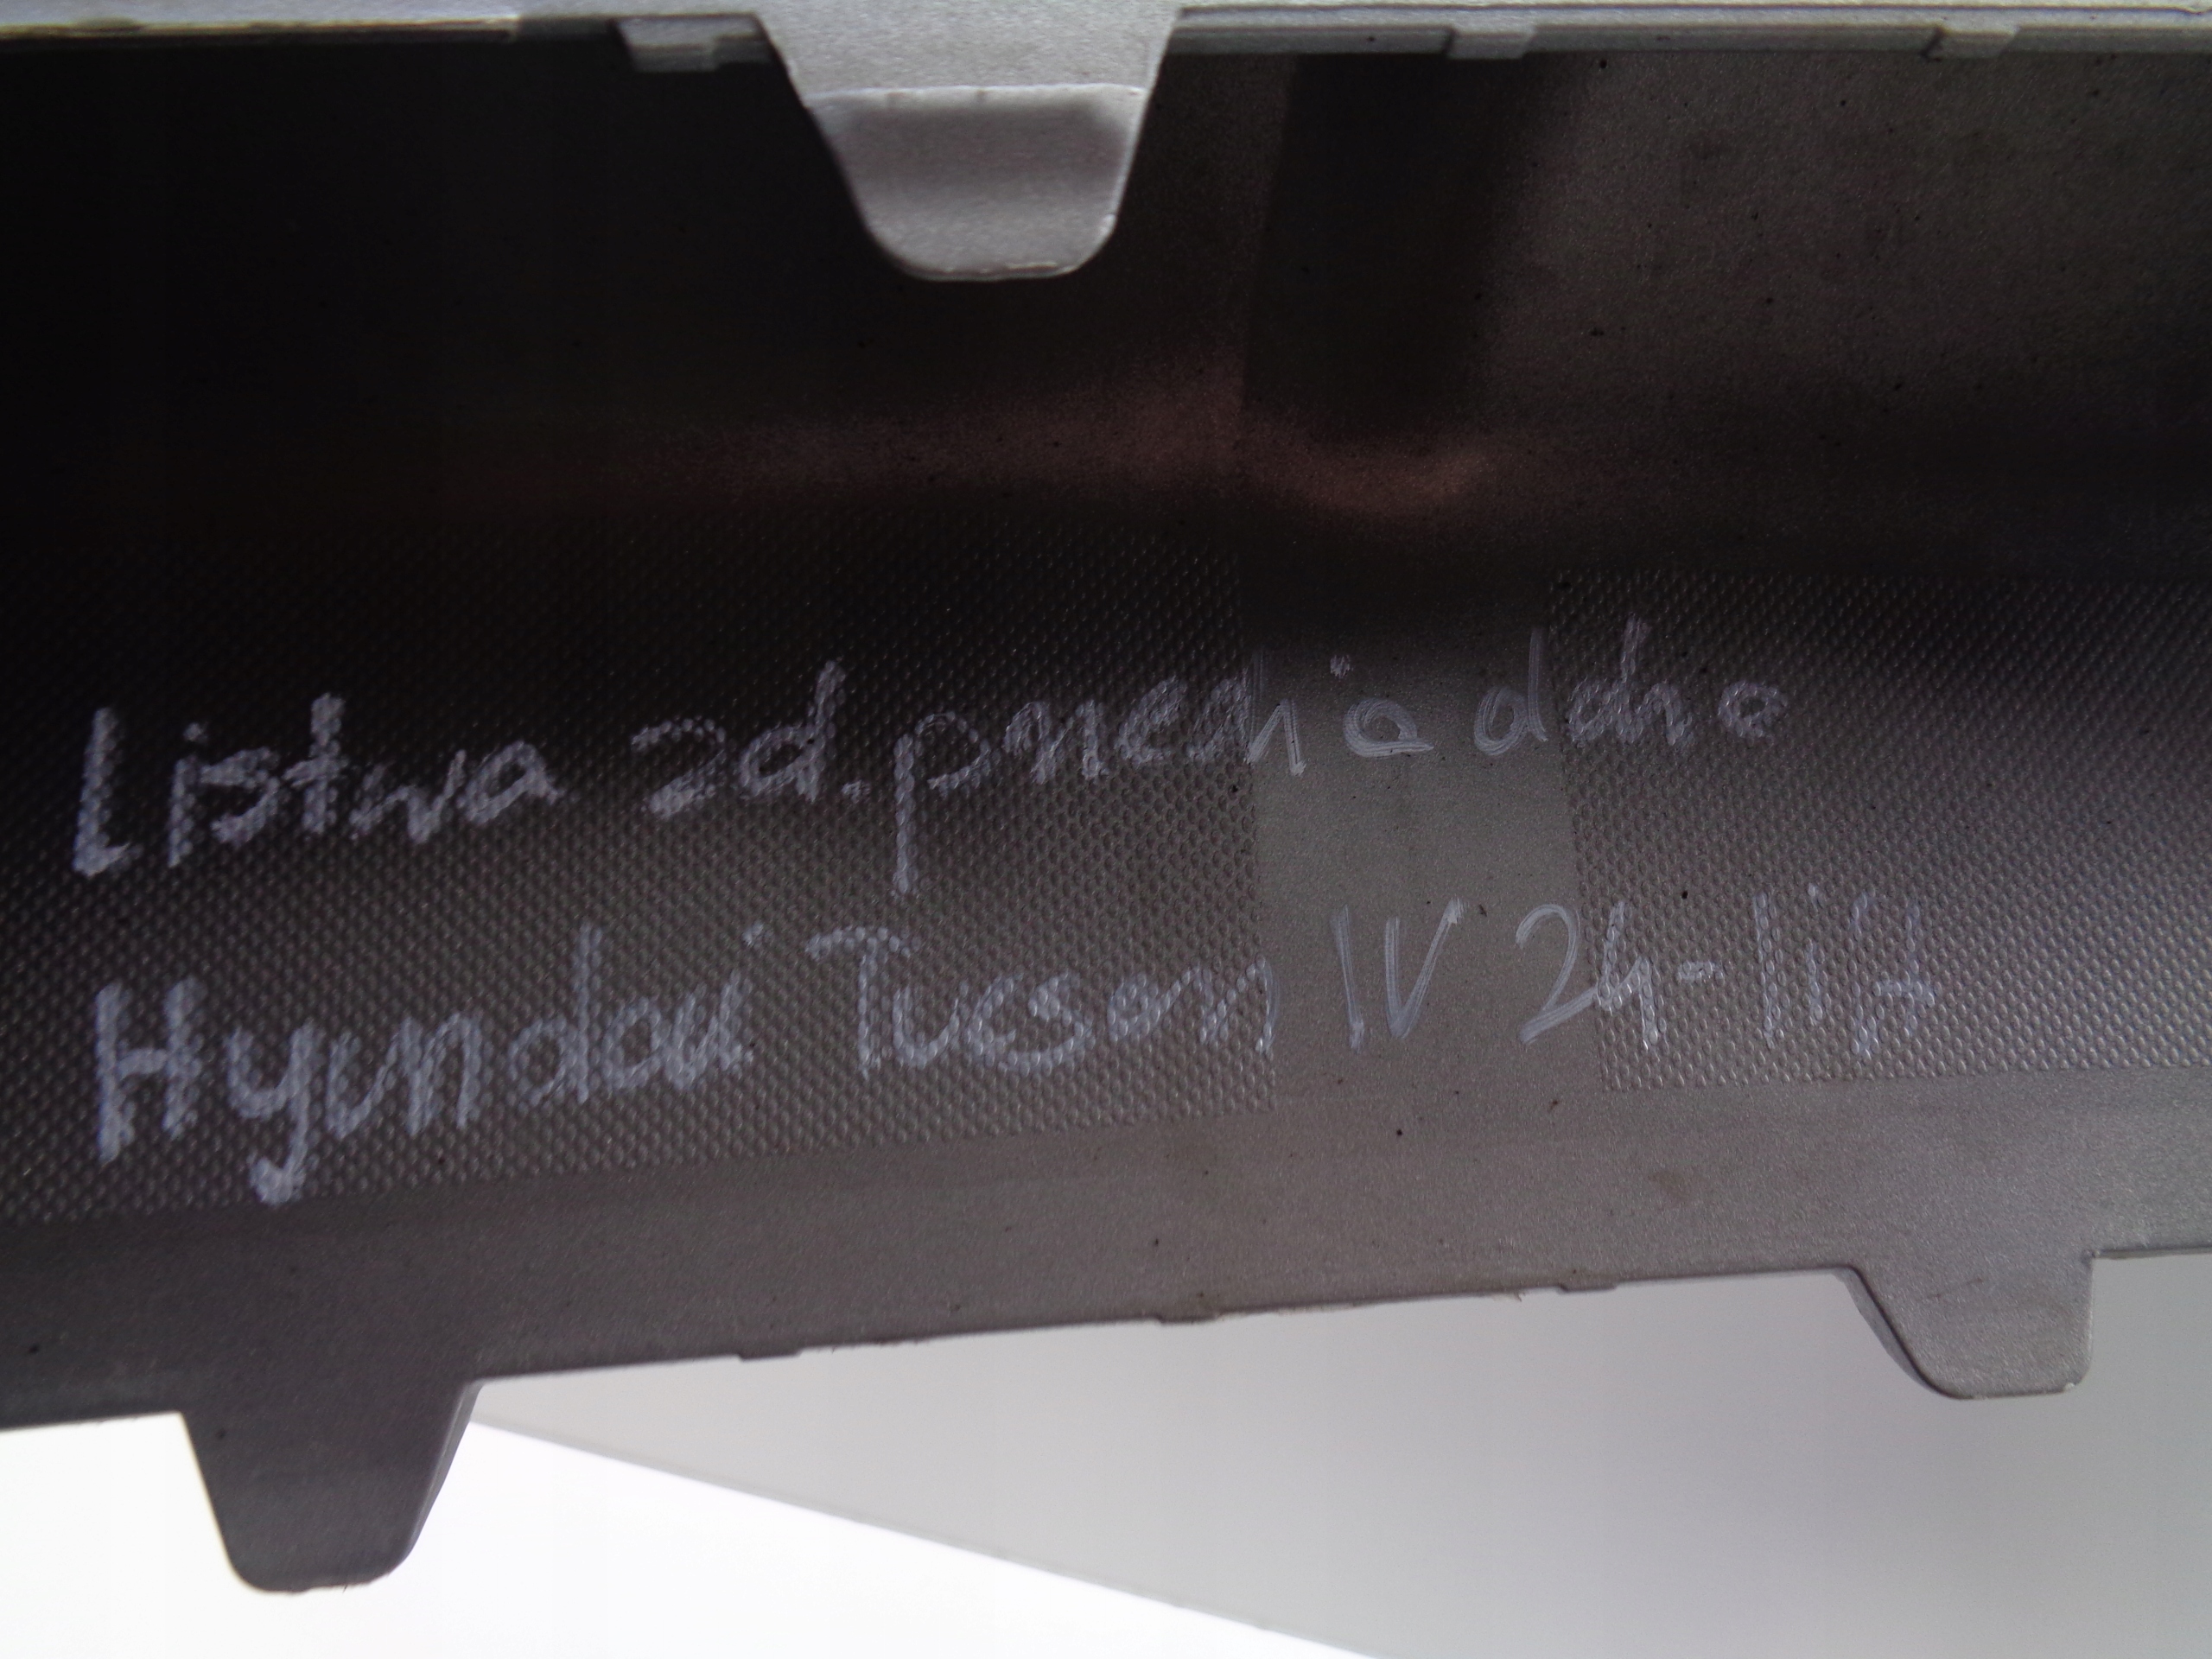 Listwa zd. przednia dolna
Hyundai Tucson IV 24- lift